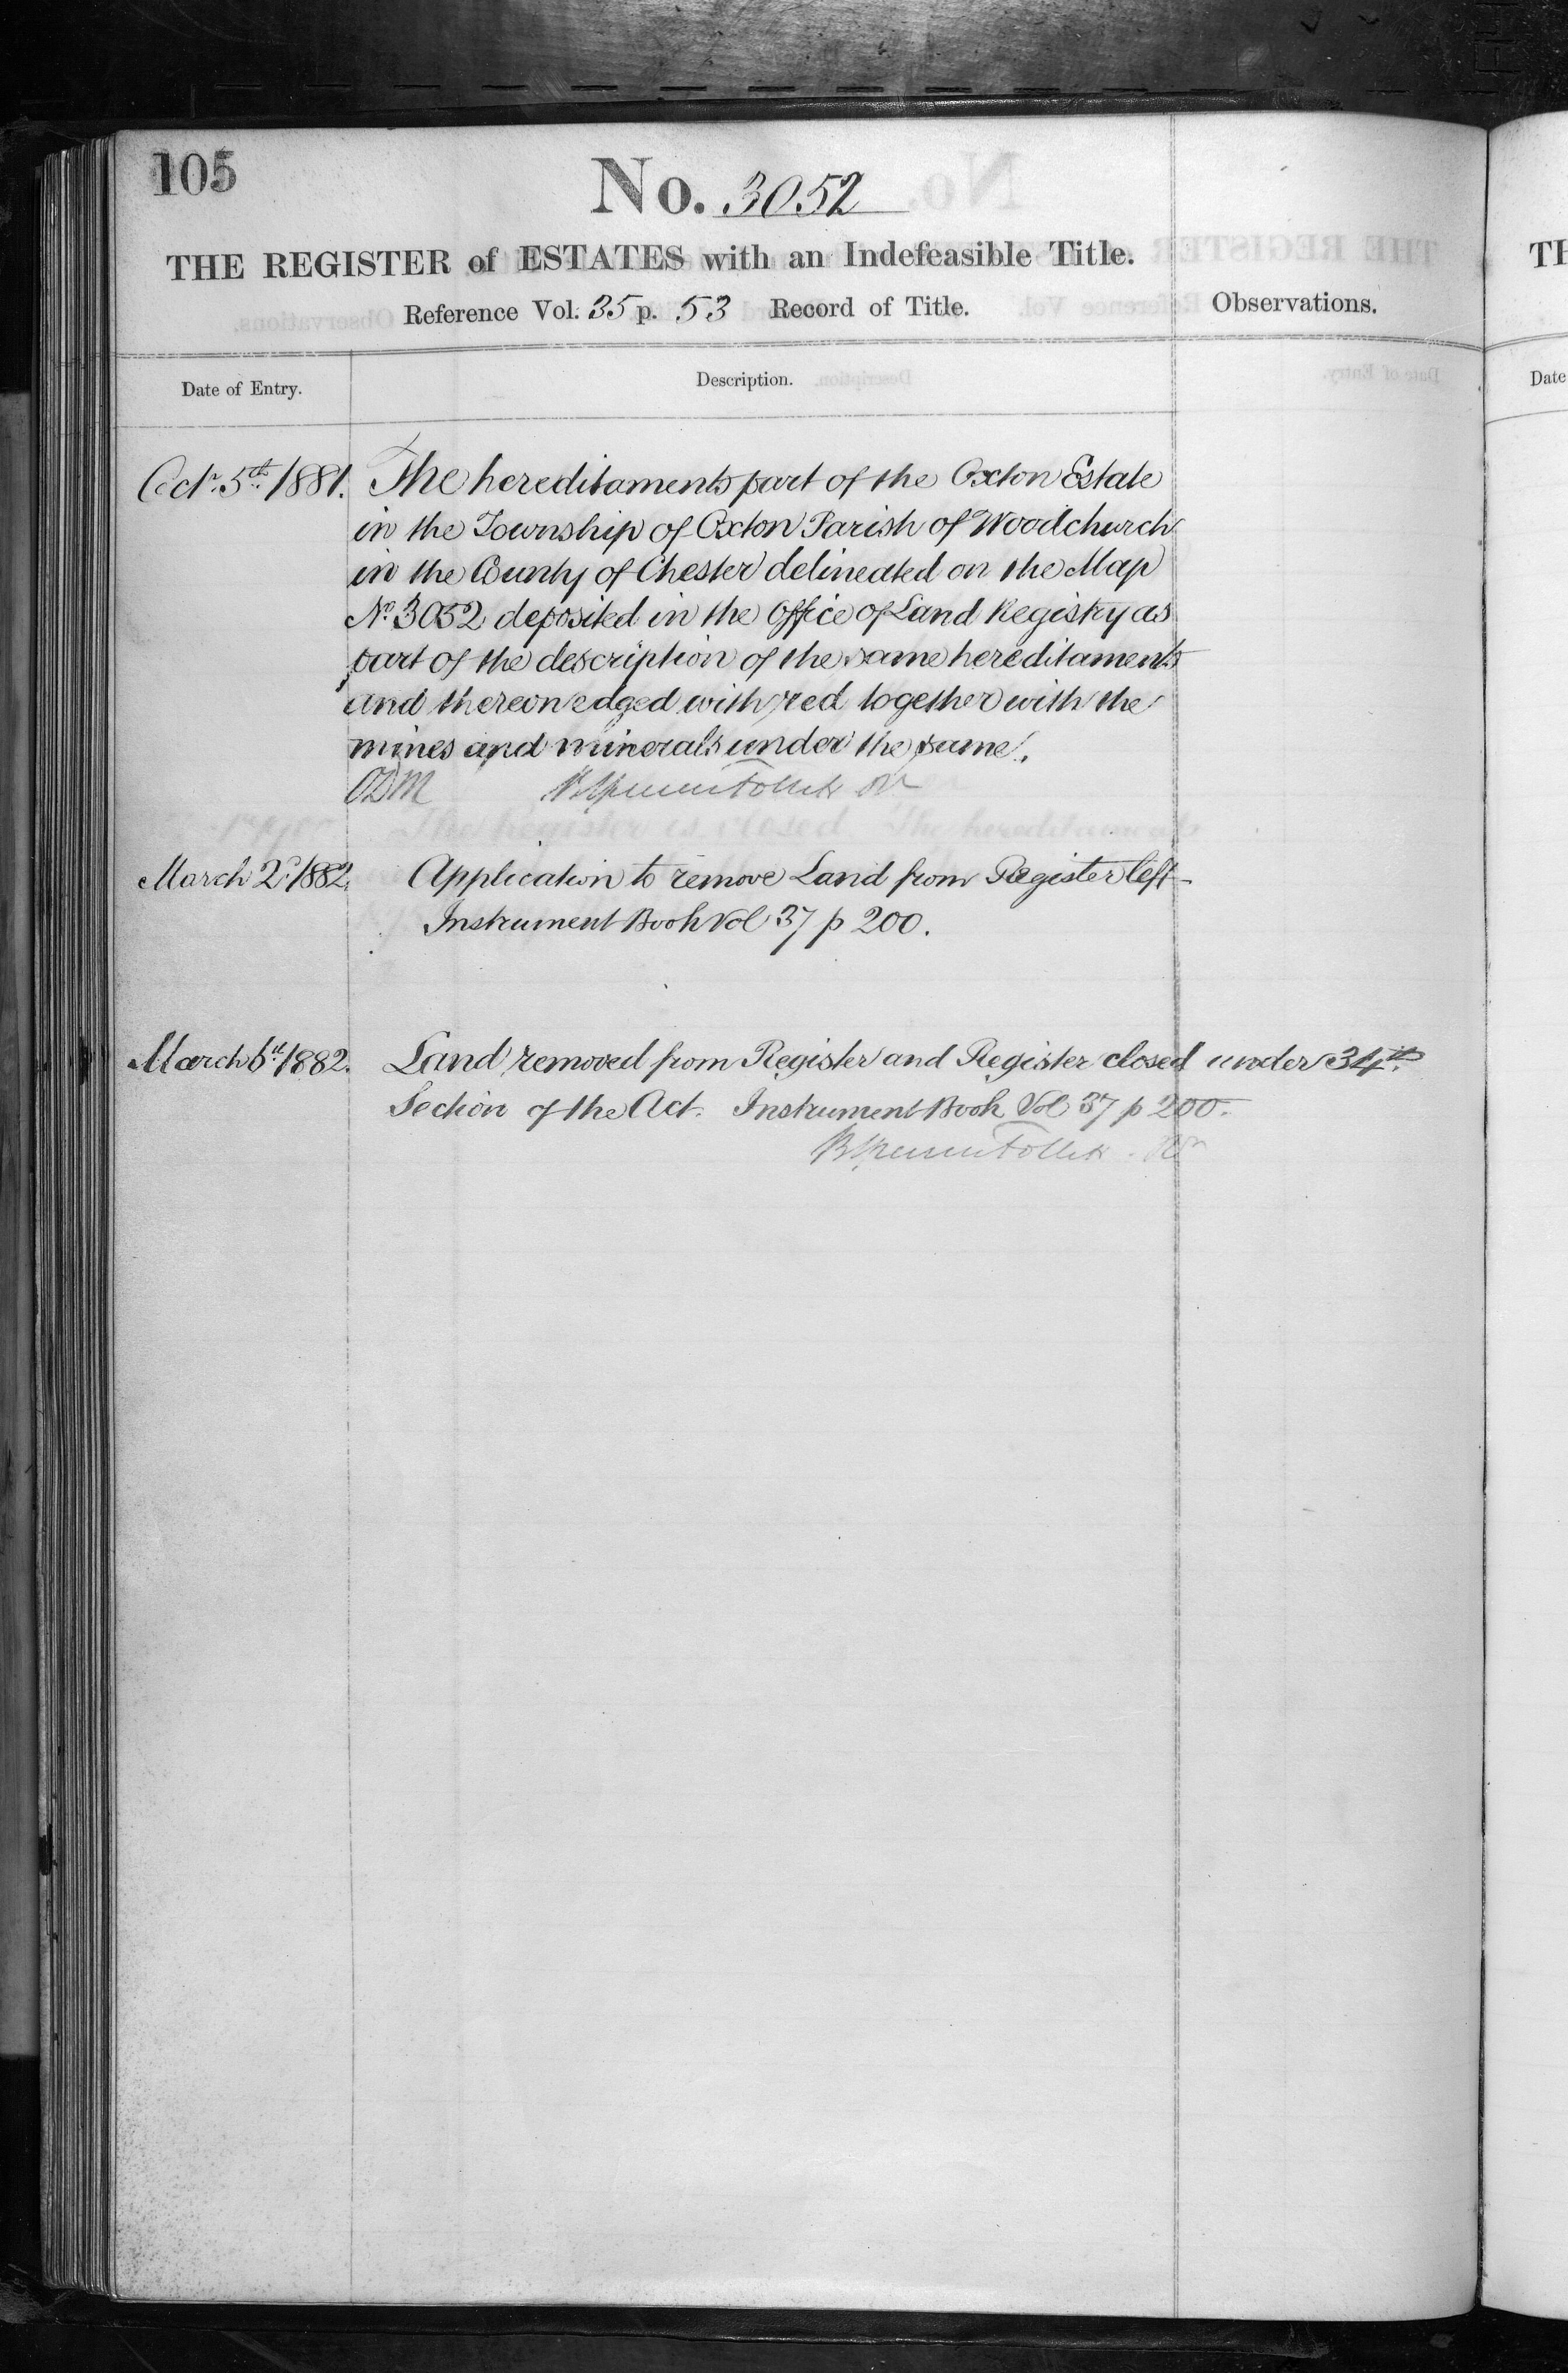 105
No. 3052
THE REGISTER of ESTATES with an Indefeasible Title.
Reference Vol. 35 p. 53 Record of Title.
Observations.
Date of Entry.
Description.
Octr. 5th. 1881. The hereditaments part of the Oxton Estate
in the Township of Oxton Parish of Woodchurch
in the County of Chester delineated on the Map
No. 3052 deposited in the Office of Land Registry as
part of the description of the same hereditaments
and thereon edged with red together with the
mines and minerals under the same.
The Register is closed. The hereditaments
March 2d. 1882. Application to remove Land from Register left
Instrument Book Vol 37 p 200.
March 6th. 1882. Land removed from Register and Register closed under 34th.
Section of the Act. Instrument Book Vol 37 p 200.
TH
Date